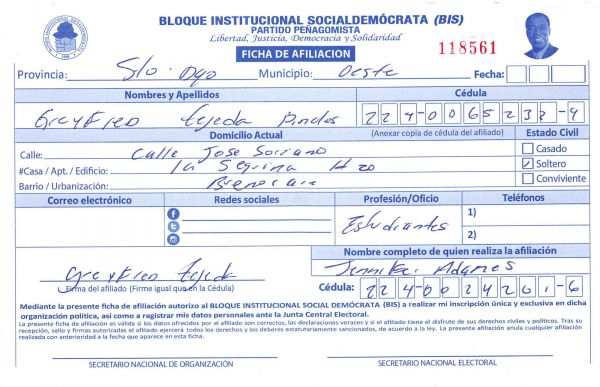 BLOQUE INSTITUCIONAL SOCIALDEMÓCRATA (BIS)
PARTIDO PEÑAGOMISTA
Libertad, Justicia, Democracia y Solidaridad
FICHA DE AFILIACION
118561
Provincia: Sto. Dgo Municipio: Oeste Fecha:
Nombres y Apellidos Cédula
Greyfreo Tejeda 224-0065232-4
Domicilio Actual (Anexar copia de cédula del afiliado) Estado Civil
Calle: Calle Jose Soriano Casado
#Casa / Apt. / Edificio: la Sequina # 20 Soltero
Barrio / Urbanización: Conviviente
Correo electrónico Redes sociales Profesión/Oficio Teléfonos
Estudiantes 1)
2)
Nombre completo de quien realiza la afiliación
Greyfreo Tejeda Jennifer Adames
Firma del afiliado (Firme igual que en la Cédula) Cédula: 224-0024201-6
Mediante la presente ficha de afiliación autorizo al BLOQUE INSTITUCIONAL SOCIAL DEMÓCRATA (BIS) a realizar mi inscripción única y exclusiva en dicha
organización política, así como a registrar mis datos personales ante la Junta Central Electoral.
La presente ficha de afiliación es válida si los datos ofrecidos por el afiliado son correctos, las declaraciones veraces y si el afiliado tiene el disfrute de sus derechos civiles y políticos. Tras su
recepción, sello y firmas autorizadas el afiliado ejercerá todos los derechos y los deberes estatutariamente sancionados, de acuerdo a la ley. La presente afiliación anula cualquier afiliación
realizada con anterioridad a la fecha que aparece en esta ficha.
SECRETARIO NACIONAL DE ORGANIZACIÓN SECRETARIO NACIONAL ELECTORAL